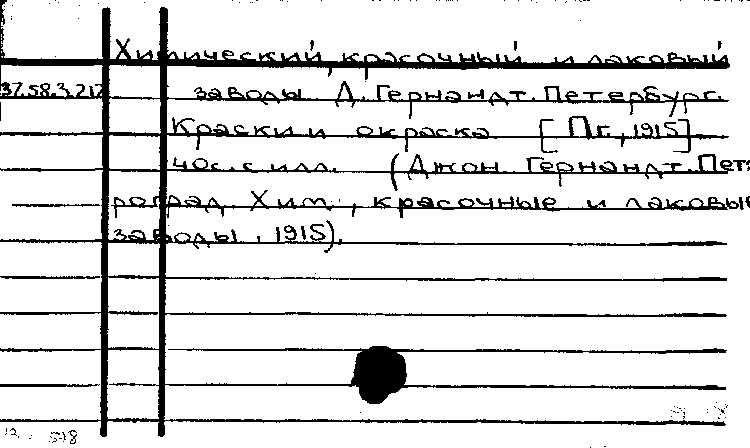 Химический, красочный и лаковый
37.58.3.217 заводы Д. Гернандт. Петербург.
Краски и окраска [Пг., 1915].
40с. с илл. (Джон Гернандт. Пет-
роград. Хим., красочные и лаковые
заводы. 1915).
578